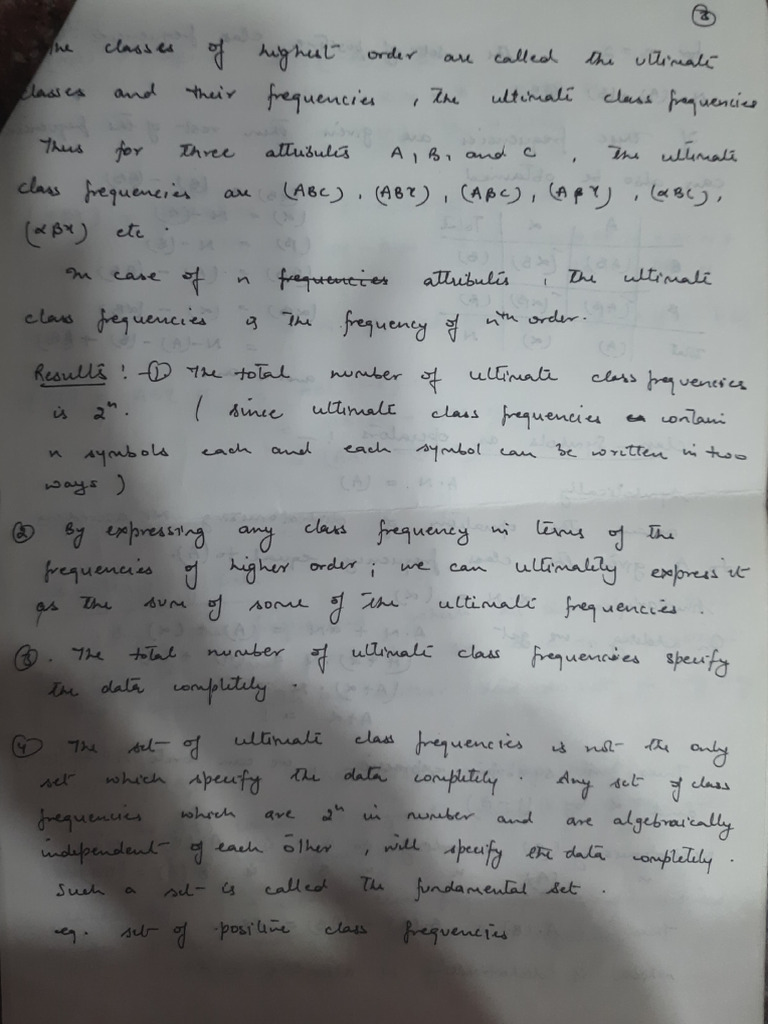 3
The classes of highest order are called the ultimate
classes and their frequencies, the ultimate class frequencies
Thus for three attributes A, B, and C, The ultimate
class frequencies are (ABC), (ABγ), (AβC), (Aβγ), (αBC),
(αBγ) etc.
In case of n frequencies attributes, the ultimate
class frequencies is the frequency of nth order.
Results :- ① The total number of ultimate class frequencies
is 2ⁿ. (since ultimate class frequencies contain
n symbols each and each symbol can be written in two
ways)
② By expressing any class frequency in terms of the
frequencies of higher order; we can ultimately express it
as the sum of some of the ultimate frequencies.
③. The total number of ultimate class frequencies specify
the data completely.
④ The set of ultimate class frequencies is not the only
set which specify the data completely. Any set of class
frequencies which are 2ⁿ in number and are algebraically
independent of each other, will specify the data completely.
Such a set is called the fundamental set.
eg. set of positive class frequencies